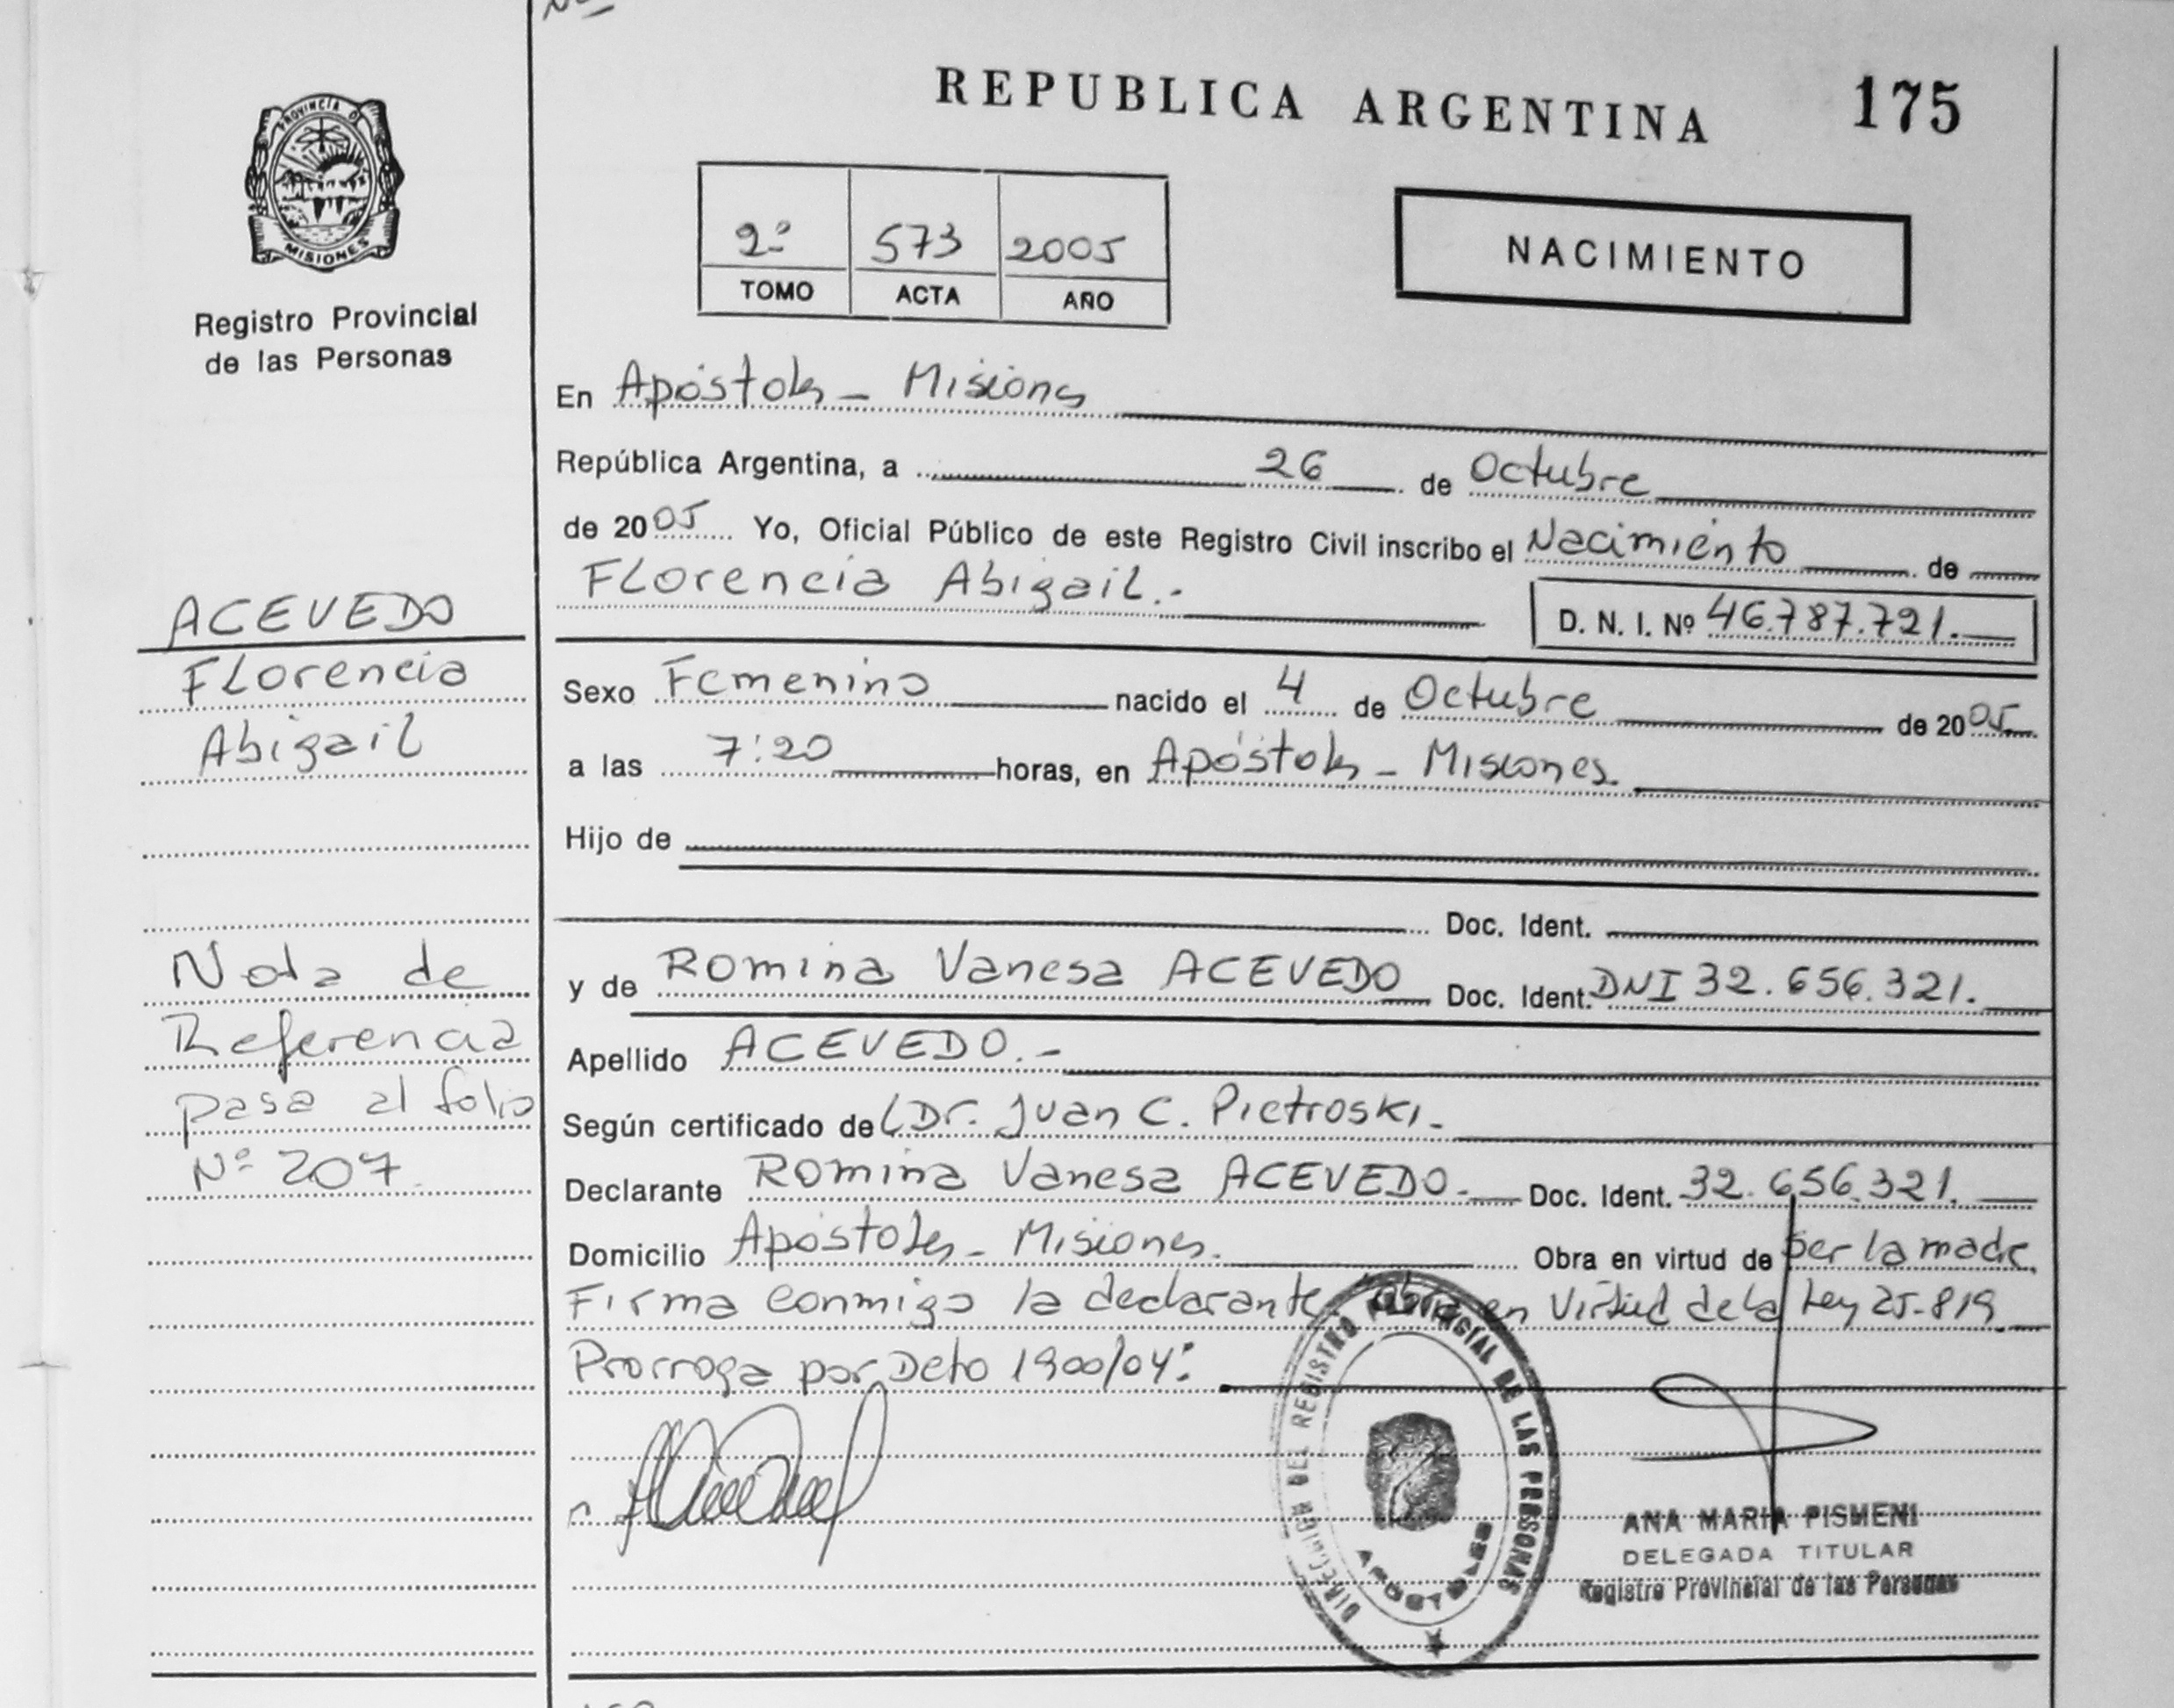 Nº
REPUBLICA ARGENTINA 175
PROVINCIA DE
MISIONES
Registro Provincial
de las Personas
2º 573 2005
TOMO ACTA AÑO
NACIMIENTO
En Apóstoles - Misiones
República Argentina, a 26 de Octubre
de 2005 Yo, Oficial Público de este Registro Civil inscribo el Nacimiento de
Florencia Abigail.-
D. N. I. Nº 46.787.721.
Sexo Femenino nacido el 4 de Octubre de 2005
a las 7:20 horas, en Apóstoles - Misiones.
Hijo de
Doc. Ident.
y de Romina Vanesa ACEVEDO Doc. Ident. DNI 32.656.321.
Apellido ACEVEDO.-
Según certificado de Dr. Juan C. Pietroski.
Declarante Romina Vanesa ACEVEDO. Doc. Ident. 32.656.321.
Domicilio Apóstoles - Misiones. Obra en virtud de ser la madre.
Firma conmigo la declarante. Obra en Virtud de la Ley 25.819
Prorroga por Dcto 1900/04.
ACEVEDO
Florencia
Abigail
Nota de
Referencia
pasa al folio
Nº 207
DIRECCION DEL REGISTRO PROVINCIAL DE LAS PERSONAS
APOSTOLES
ANA MARIA PISMENI
DELEGADA TITULAR
Registro Provincial de las Personas